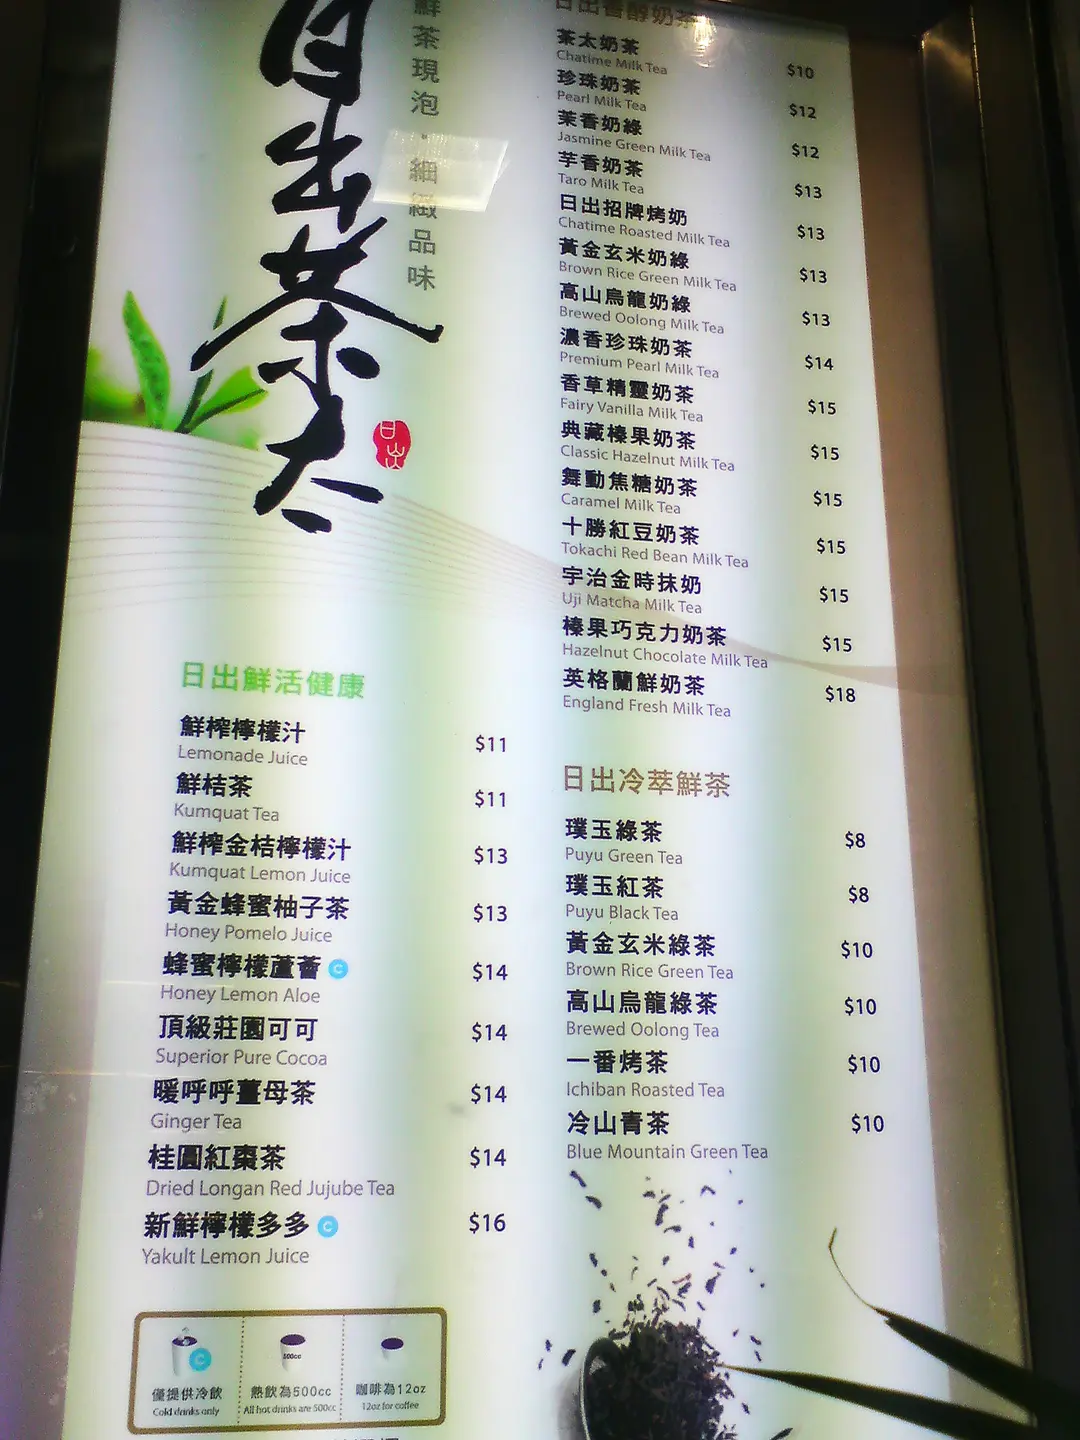 日出茶太
鮮茶現泡·細緻品味
日出
日出香醇奶茶
茶太奶茶
Chatime Milk Tea
$10
珍珠奶茶
Pearl Milk Tea
$12
茉香奶綠
Jasmine Green Milk Tea
$12
芋香奶茶
Taro Milk Tea
$13
日出招牌烤奶
Chatime Roasted Milk Tea
$13
黃金玄米奶綠
Brown Rice Green Milk Tea
$13
高山烏龍奶綠
Brewed Oolong Milk Tea
$13
濃香珍珠奶茶
Premium Pearl Milk Tea
$14
香草精靈奶茶
Fairy Vanilla Milk Tea
$15
典藏榛果奶茶
Classic Hazelnut Milk Tea
$15
舞動焦糖奶茶
Caramel Milk Tea
$15
十勝紅豆奶茶
Tokachi Red Bean Milk Tea
$15
宇治金時抹奶
Uji Matcha Milk Tea
$15
榛果巧克力奶茶
Hazelnut Chocolate Milk Tea
$15
英格蘭鮮奶茶
England Fresh Milk Tea
$18
日出鮮活健康
鮮榨檸檬汁
Lemonade Juice
$11
鮮桔茶
Kumquat Tea
$11
鮮榨金桔檸檬汁
Kumquat Lemon Juice
$13
黃金蜂蜜柚子茶
Honey Pomelo Juice
$13
蜂蜜檸檬蘆薈 C
Honey Lemon Aloe
$14
頂級莊園可可
Superior Pure Cocoa
$14
暖呼呼薑母茶
Ginger Tea
$14
桂圓紅棗茶
Dried Longan Red Jujube Tea
$14
新鮮檸檬多多 C
Yakult Lemon Juice
$16
日出冷萃鮮茶
璞玉綠茶
Puyu Green Tea
$8
璞玉紅茶
Puyu Black Tea
$8
黃金玄米綠茶
Brown Rice Green Tea
$10
高山烏龍綠茶
Brewed Oolong Tea
$10
一番烤茶
Ichiban Roasted Tea
$10
冷山青茶
Blue Mountain Green Tea
$10
C
僅提供冷飲
Cold drinks only
500cc
熱飲為500cc
All hot drinks are 500cc
咖啡為12oz
12oz for coffee